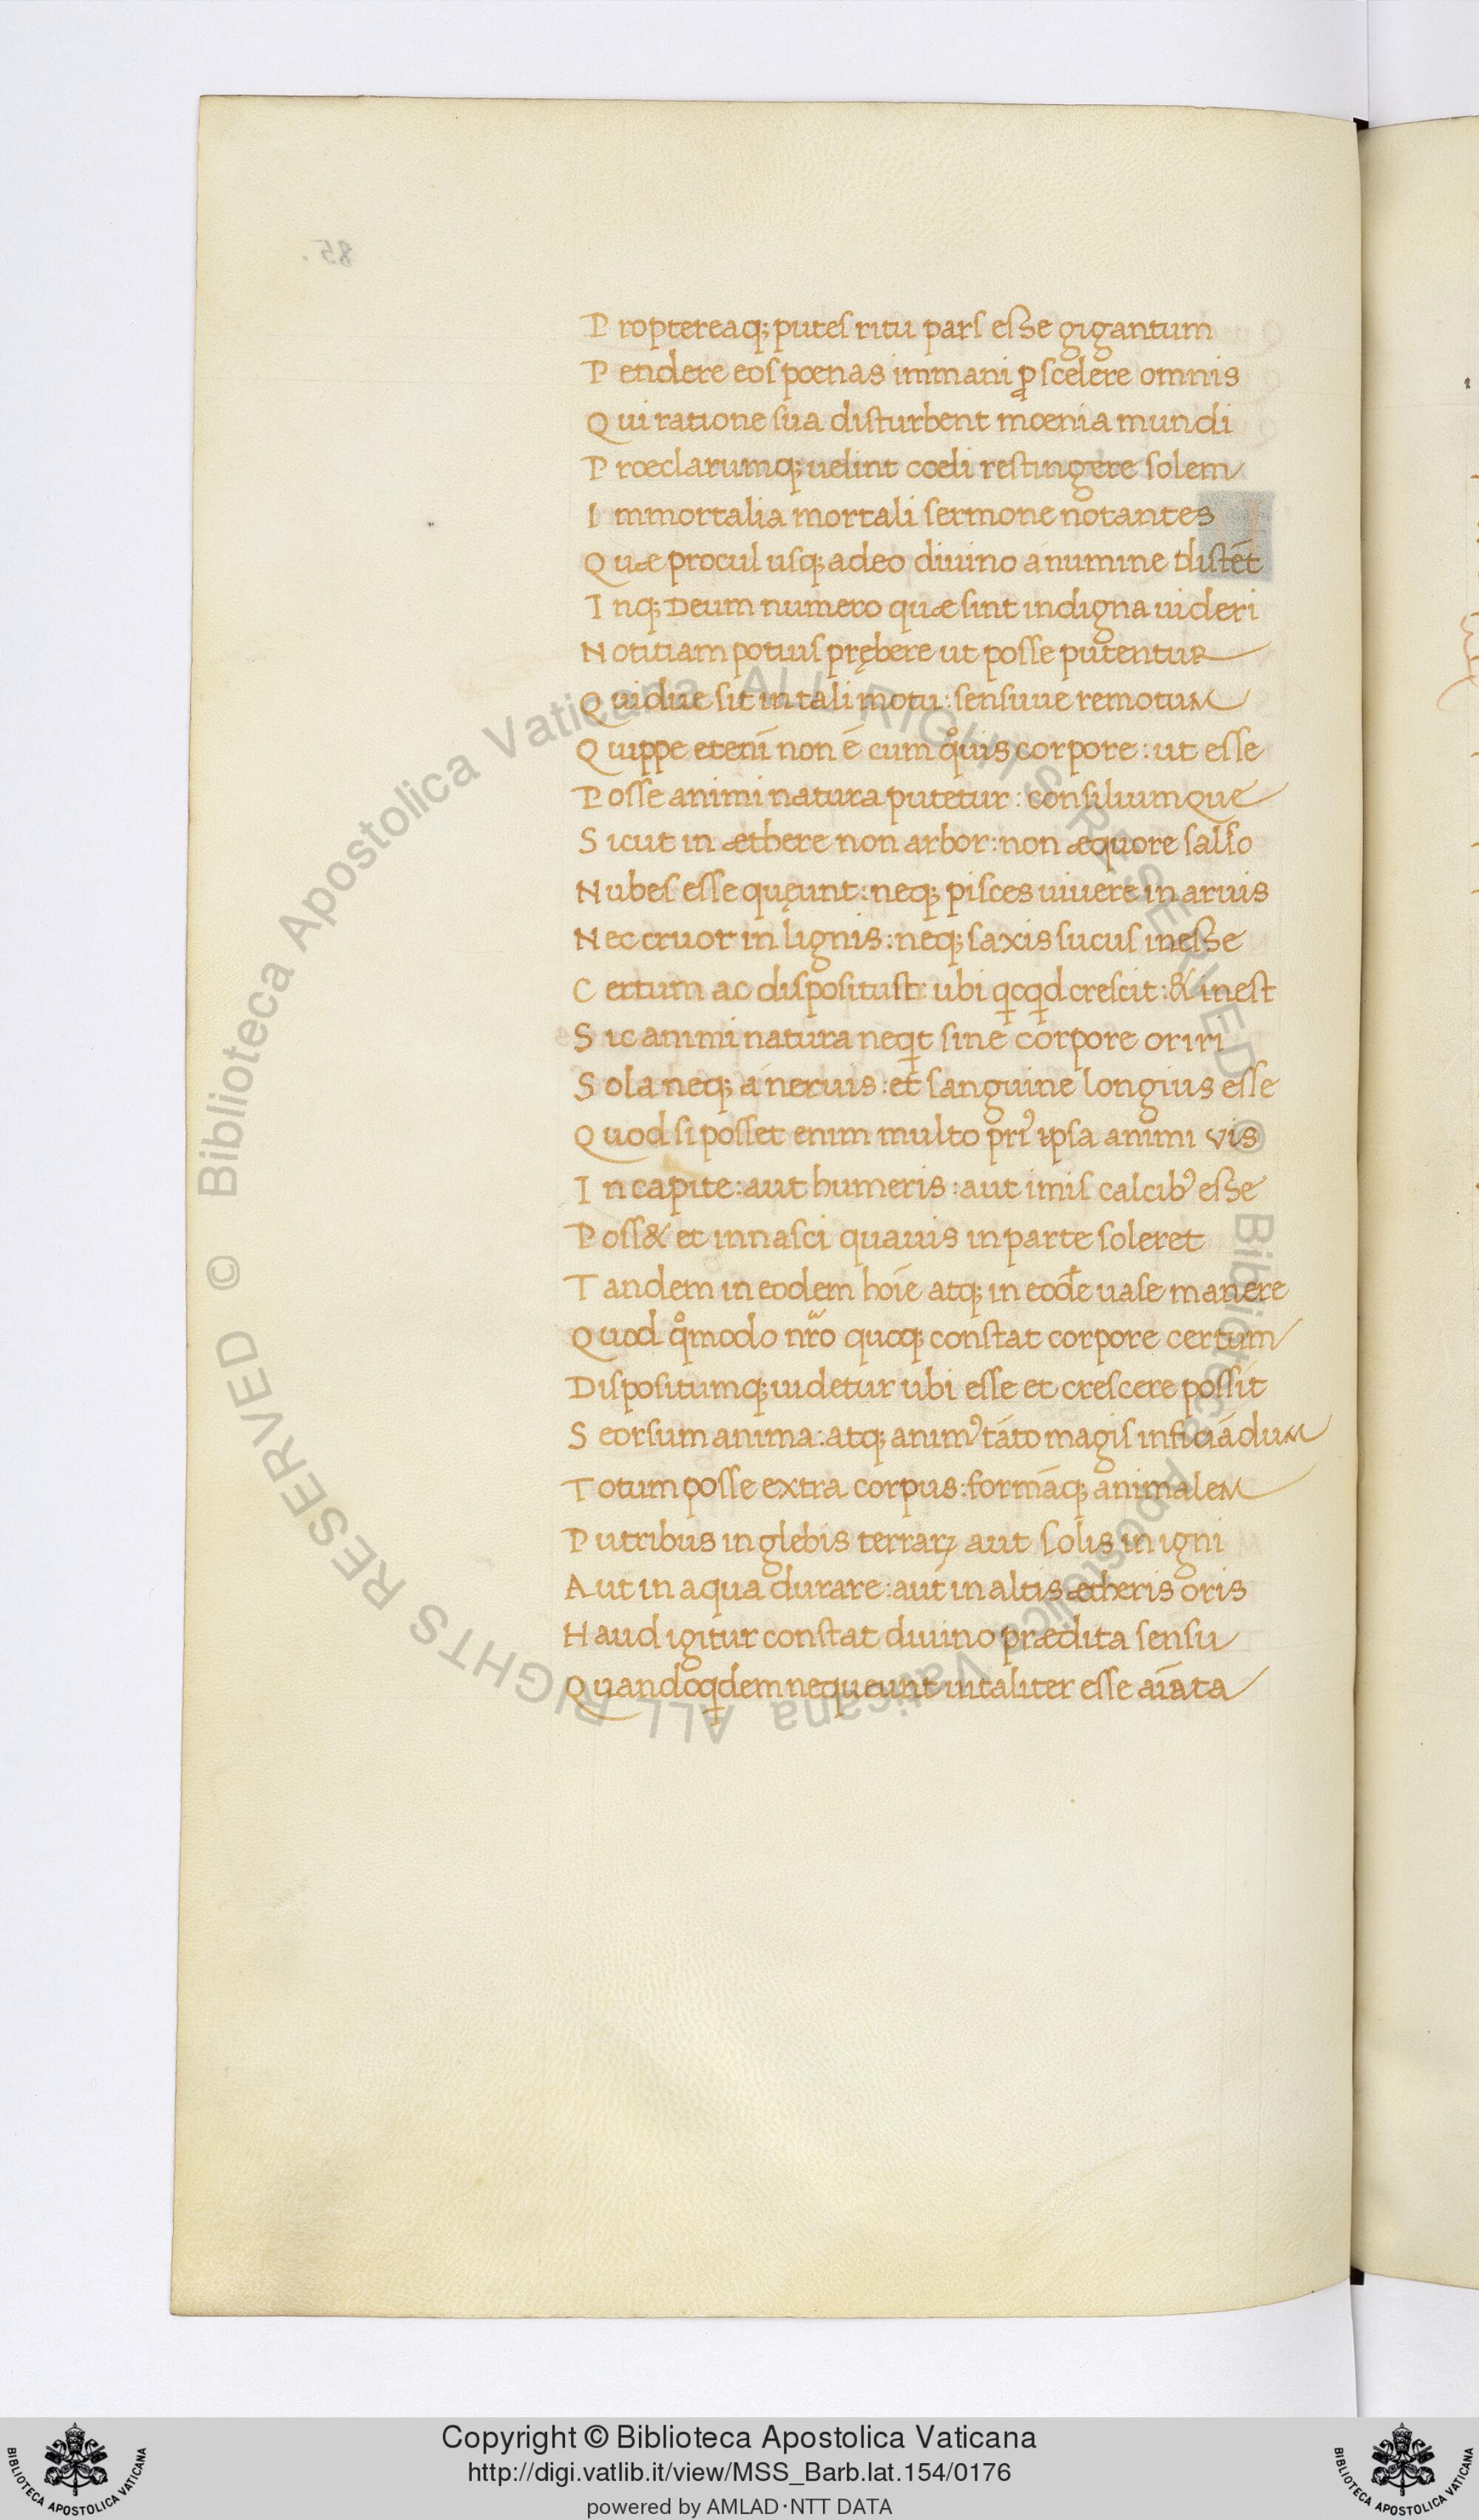 85.
P roptereaq; putes ritu pars esse gigantum
P endere eos pœnas immani ꝓ scelere omnis
Q ui ratione sua disturbent mœnia mundi
P rœclarumq; uelint cœli restingere solem
I mmortalia mortali sermone notantes
Q uæ procul usq; adeo diuino a numine distēt
I nq; Deum numero quæ sint indigna uideri
N otitiam potius prębere ut posse putentur
Q uidue sit in tali motu: sensuue remotum
Q uippe etenī non ē cum qͦuis corpore: ut esse
P osse animi natura putetur: consiliumque
S icut in æthere non arbor: non æquore salso
N ubes esse quęunt: neq; pisces uiuere in aruis
N ec cruor in lignis: neq; saxis sucus inesse
C ertum ac dispositust: ubi qͥcqͥd crescit: & inest
S ic animi natura neqͥt sine corpore oriri
S ola neq; a neruis: et sanguine longius esse
Q uod si posset enim multo pri⁹ ipsa animi vis
I n capite: aut humeris: aut imis calcib⁹ esse
P oss& et innasci quauis in parte soleret
T andem in eodem hoīe atq; in eodē uase manere
Q uod qͦmodo nr̃o quoq; constat corpore certum
Dispositumq; uidetur ubi esse et crescere possit
S eorsum anima: atq; anim⁹ tāto magis inficiādum
T otum posse extra corpus: formāq; animalem
P utribus in glebis terraꝝ aut solis in igni
A ut in aqua durare: aut in altis ætheris oris
H aud igitur constat diuino prædita sensu
Q uandoqͥdem nequeunt uitaliter esse aīata
© Biblioteca Apostolica Vaticana ALL RIGHTS RESERVED © Biblioteca Apostolica Vaticana ALL RIGHTS RESERVED
Copyright © Biblioteca Apostolica Vaticana
http://digi.vatlib.it/view/MSS_Barb.lat.154/0176
powered by AMLAD·NTT DATA
BIBLIOTECA APOSTOLICA VATICANA
BIBLIOTECA APOSTOLICA VATICANA